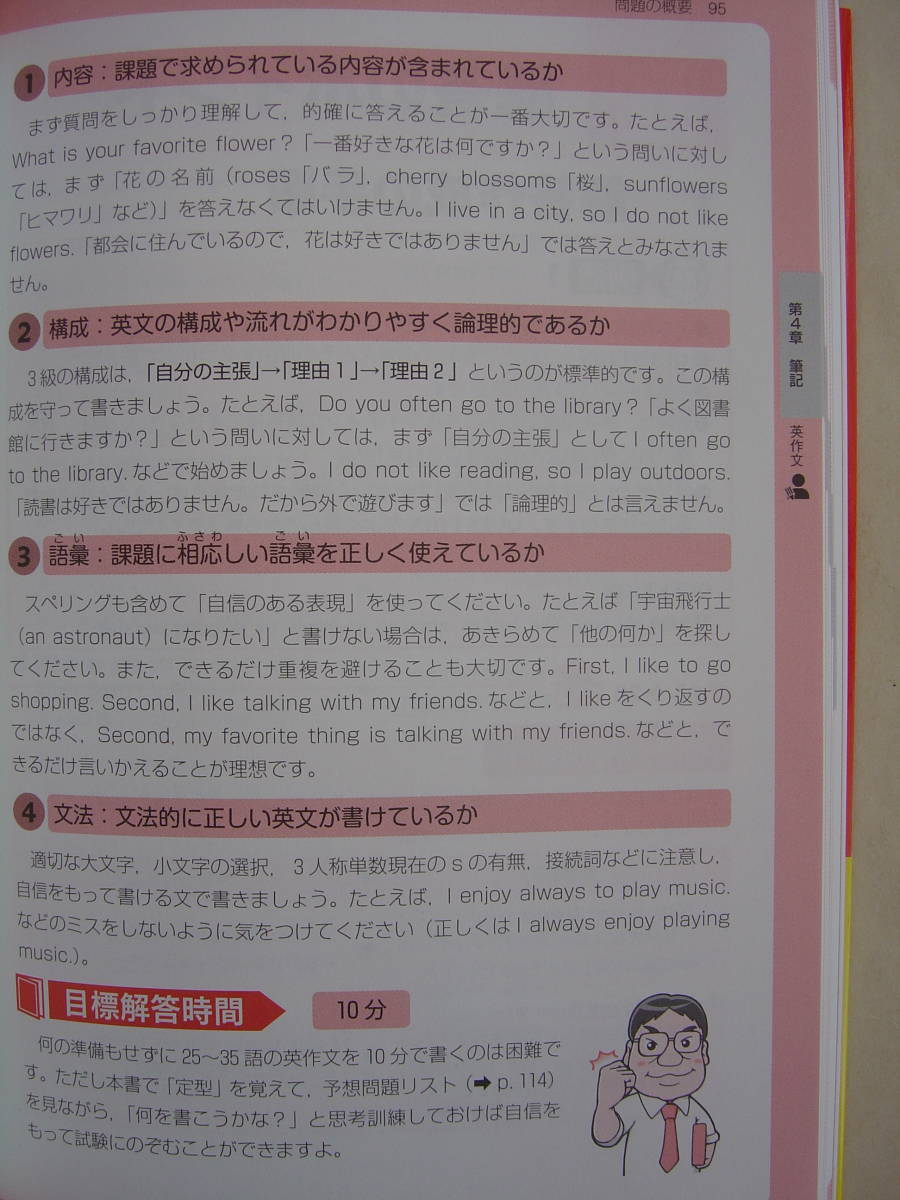 問題の概要 95
1 内容：課題で求められている内容が含まれているか
まず質問をしっかり理解して，的確に答えることが一番大切です。たとえば，
What is your favorite flower？「一番好きな花は何ですか？」という問いに対し
ては，まず「花の名前（roses「バラ」，cherry blossoms「桜」，sunflowers
「ヒマワリ」など）」を答えなくてはいけません。I live in a city, so I do not like
flowers.「都会に住んでいるので，花は好きではありません」では答えとみなされま
せん。
2 構成：英文の構成や流れがわかりやすく論理的であるか
3級の構成は，「自分の主張」→「理由1」→「理由2」というのが標準的です。この構
成を守って書きましょう。たとえば，Do you often go to the library？「よく図書
館に行きますか？」という問いに対しては，まず「自分の主張」としてI often go
to the library. などで始めましょう。I do not like reading, so I play outdoors.
「読書は好きではありません。だから外で遊びます」では「論理的」とは言えません。
ごい ふさわ ごい
3 語彙：課題に相応しい語彙を正しく使えているか
スペリングも含めて「自信のある表現」を使ってください。たとえば「宇宙飛行士
（an astronaut）になりたい」と書けない場合は，あきらめて「他の何か」を探し
てください。また，できるだけ重複を避けることも大切です。First, I like to go
shopping. Second, I like talking with my friends. などと，I likeをくり返すの
ではなく，Second, my favorite thing is talking with my friends. などと，で
きるだけ言いかえることが理想です。
4 文法：文法的に正しい英文が書けているか
適切な大文字，小文字の選択，3人称単数現在のsの有無，接続詞などに注意し，
自信をもって書ける文で書きましょう。たとえば，I enjoy always to play music.
などのミスをしないように気をつけてください（正しくはI always enjoy playing
music.）。
目標解答時間 10分
何の準備もせずに25～35語の英作文を10分で書くのは困難で
す。ただし本書で「定型」を覚えて，予想問題リスト（➡p.114）
を見ながら，「何を書こうかな？」と思考訓練しておけば自信を
もって試験にのぞむことができますよ。
第4章 筆記
英作文